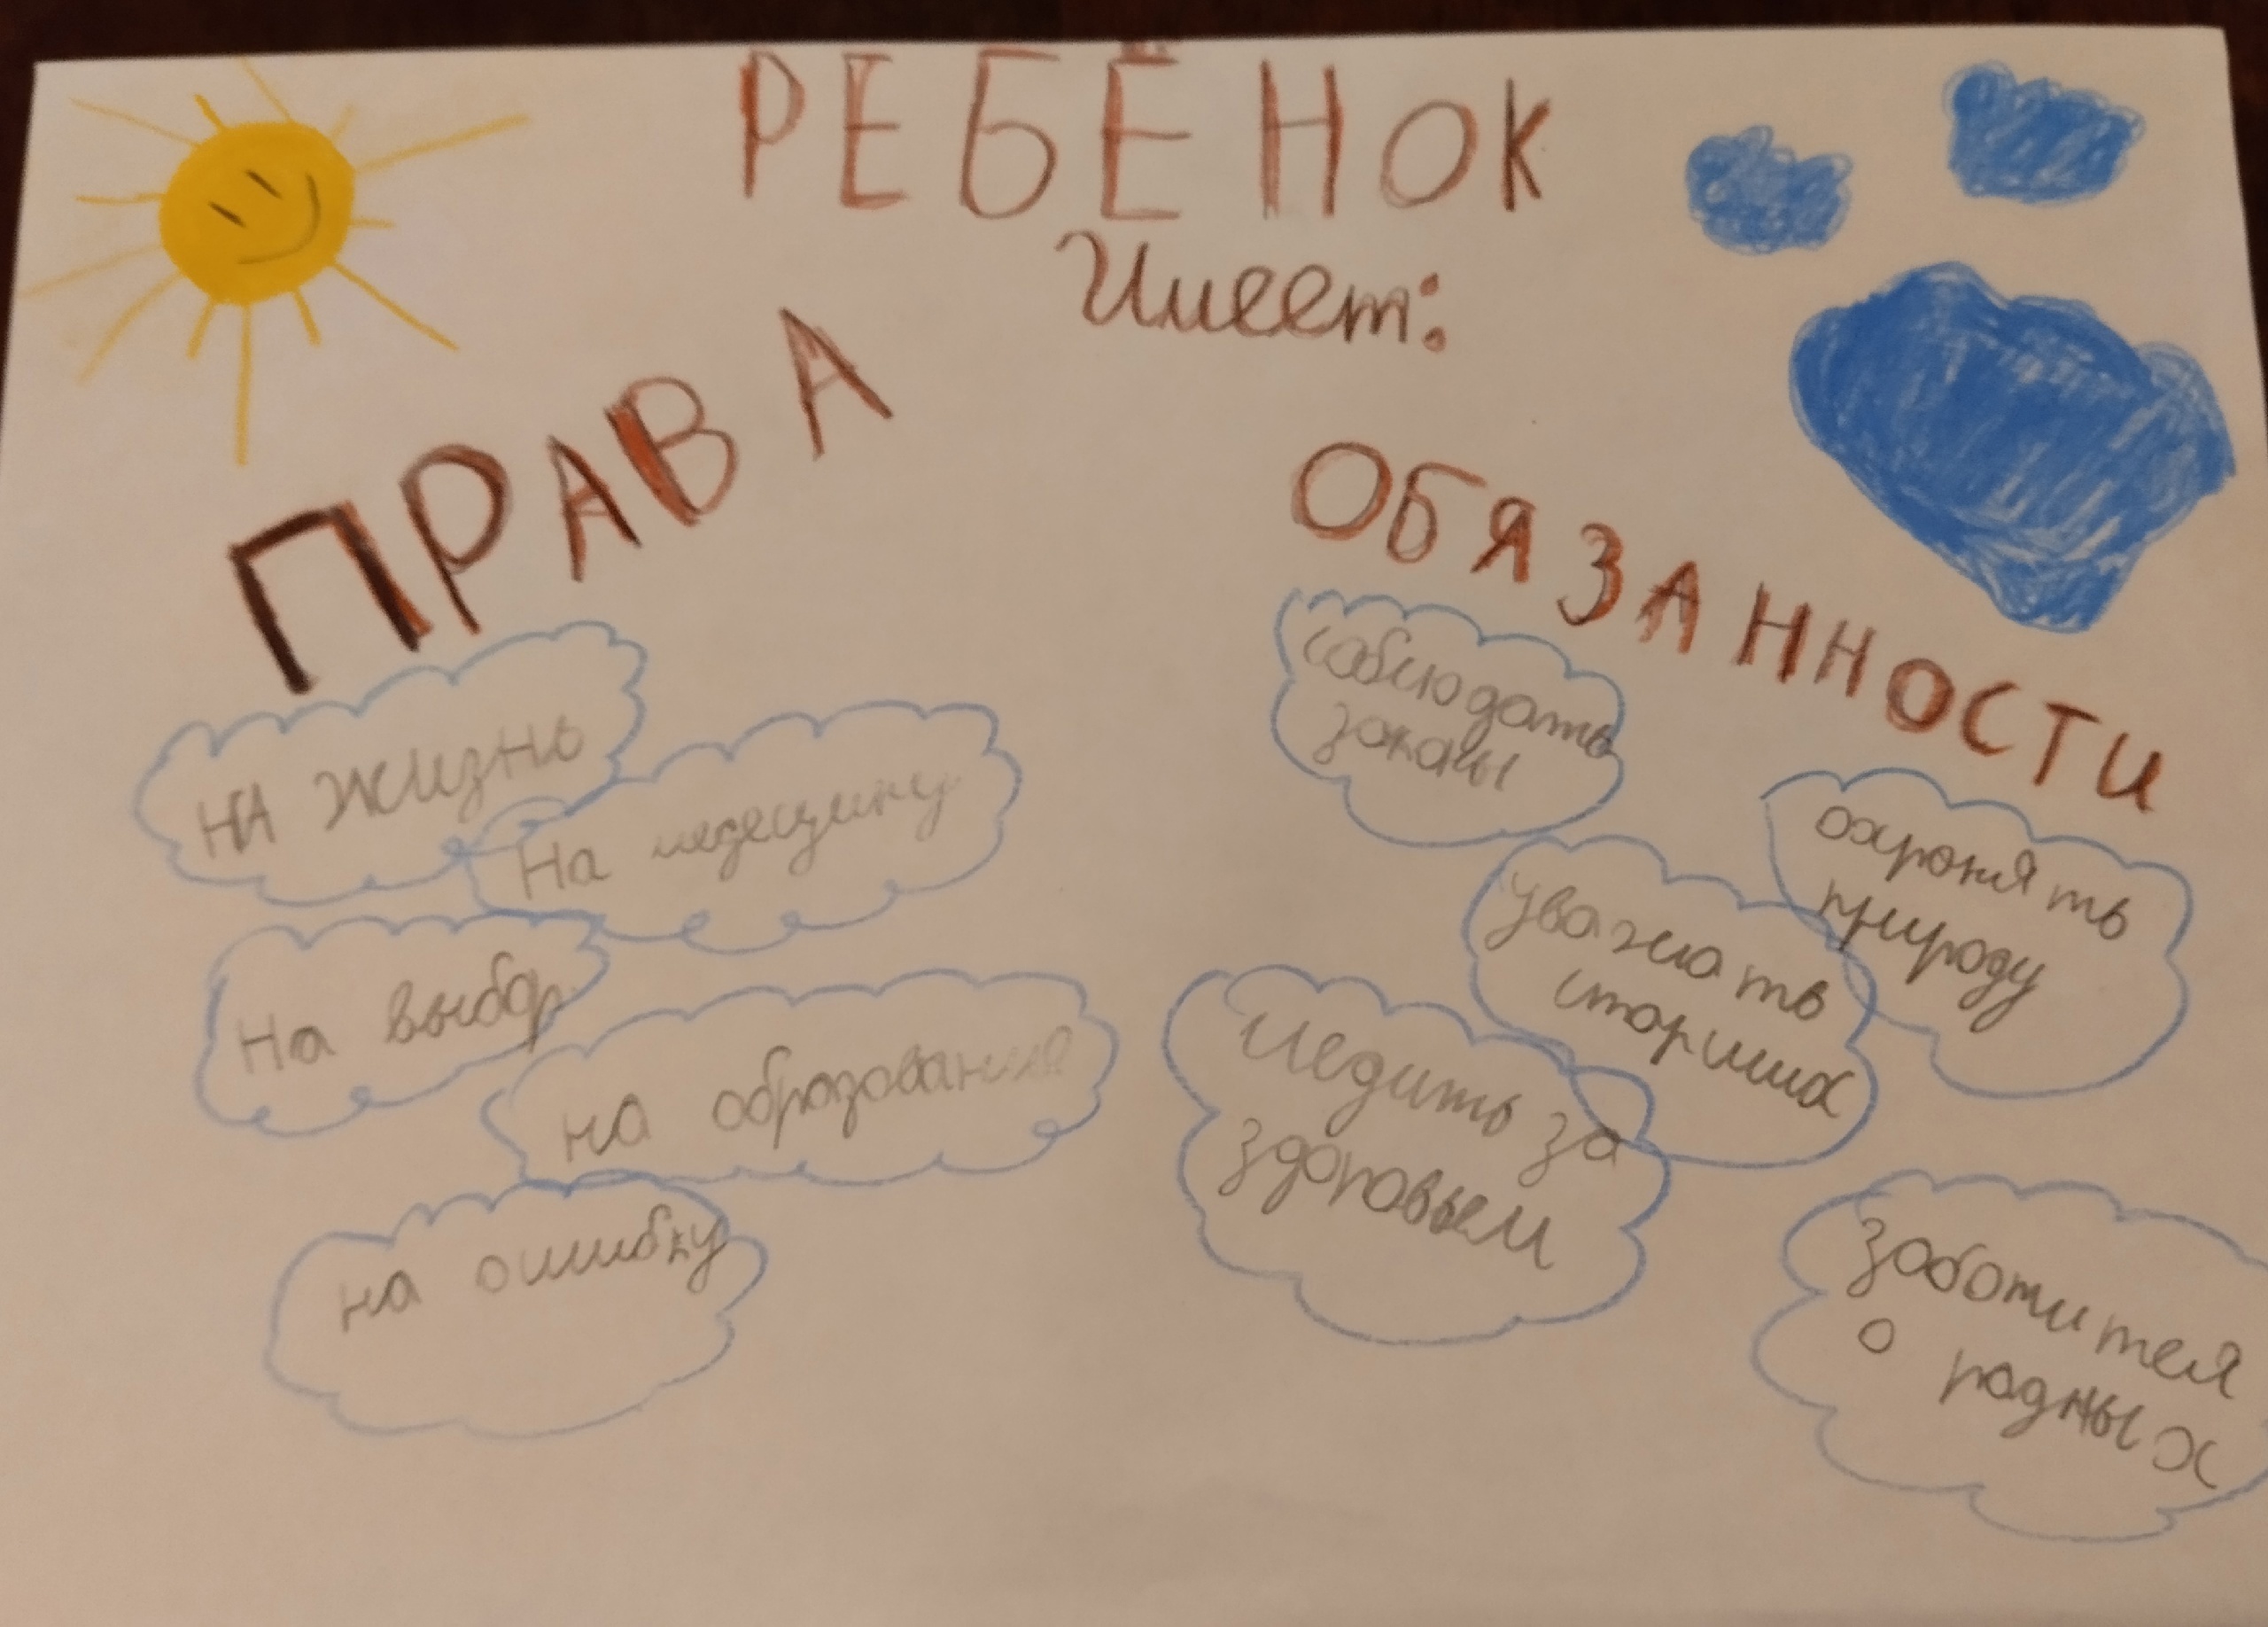 РЕБЁНОК
Имеет:
ПРАВА
НА ЖИЗНЬ
На медецину
На выбор
на образование
на ошибку
ОБЯЗАННОСТИ
соблюдать
законы
охронять
природу
уважать
старших
следить за
здоровьем
заботится
о родных